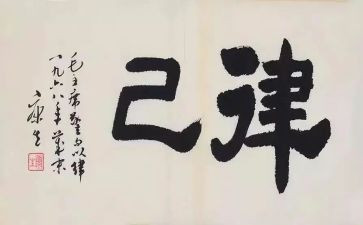 律己
毛主席警句以律
一九六八年京
康生